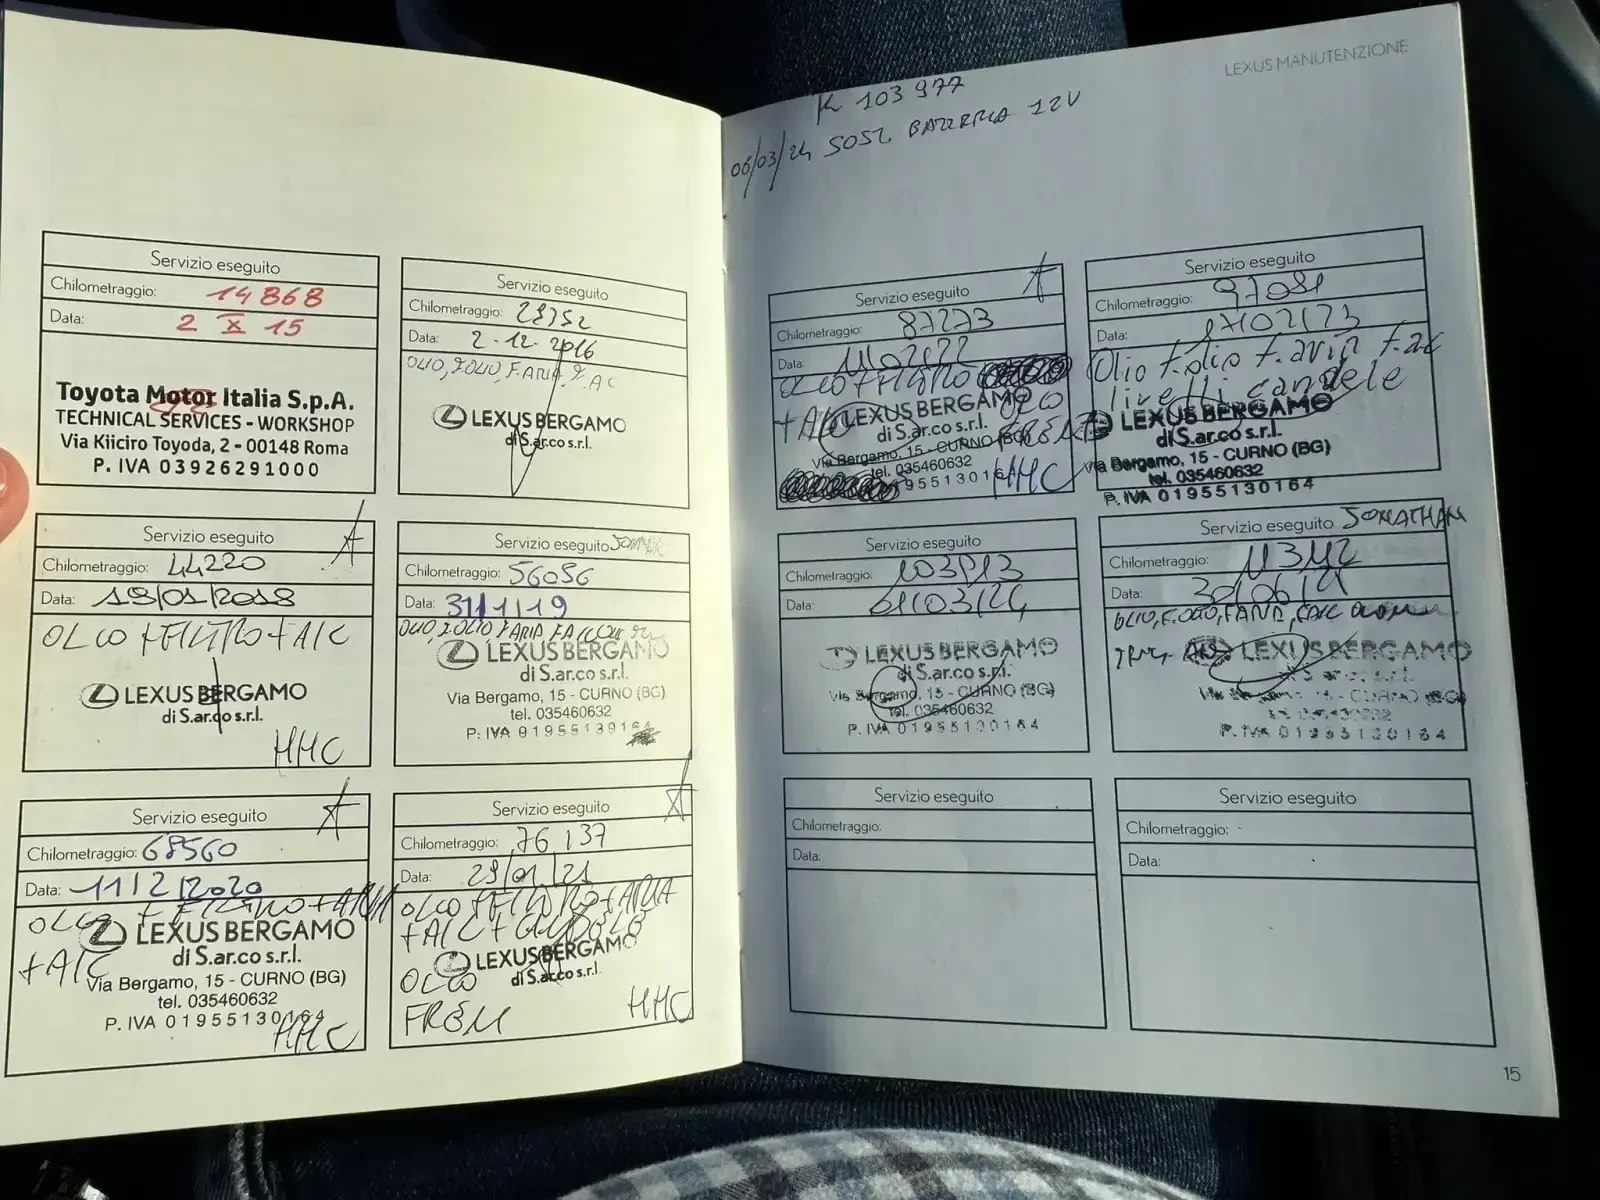 LEXUS MANUTENZIONE
K 103 977
06/03/24 SOST. BATTERIA 12V
Servizio eseguito
Chilometraggio: 14868
Data: 2 X 15
Toyota Motor Italia S.p.A.
TECHNICAL SERVICES - WORKSHOP
Via Kiiciro Toyoda, 2 - 00148 Roma
P. IVA 03926291000
Servizio eseguito
Chilometraggio:
Data: 2-12-2016
OLIO, F.OLIO, F.ARIA, F.AC
LEXUS BERGAMO
di S.ar.co s.r.l.
Servizio eseguito
Chilometraggio: 44220
Data: 19/01/2018
OLIO + FILTRO + A/C
LEXUS BERGAMO
di S.ar.co s.r.l.
HHC
Servizio eseguito
Chilometraggio: 56056
Data: 31/1/19
OLIO, F.OLIO, F.ARIA
LEXUS BERGAMO
di S.ar.co s.r.l.
Via Bergamo, 15 - CURNO (BG)
tel. 035460632
P. IVA 01955130164
Servizio eseguito
Chilometraggio: 68560
Data: 11/2/2020
OLIO + FILTRO + ARIA
LEXUS BERGAMO
di S.ar.co s.r.l.
+ A/C
Via Bergamo, 15 - CURNO (BG)
tel. 035460632
P. IVA 01955130164
HHC
Servizio eseguito
Chilometraggio: 76137
Data: 29/01/21
OLIO + FILTRO + ARIA
+ A/C +
LEXUS BERGAMO
di S.ar.co s.r.l.
OLIO
FRENI
HHC
Servizio eseguito
Chilometraggio: 87273
Data: 11/02/22
OLIO + FILTRO
+ A/C
LEXUS BERGAMO
OLIO
di S.ar.co s.r.l.
FRENI
Via Bergamo, 15 - CURNO (BG)
tel. 035460632
HHC
Servizio eseguito
Chilometraggio: 97081
Data:
Olio f.olio f.aria f.ac
livelli candele
LEXUS BERGAMO
di S.ar.co s.r.l.
Via Bergamo, 15 - CURNO (BG)
tel. 035460632
P. IVA 01955130164
Servizio eseguito
Chilometraggio: 103913
Data: 01/03/24
LEXUS BERGAMO
di S.ar.co s.r.l.
Via Bergamo, 15 - CURNO (BG)
tel. 035460632
P. IVA 01955130164
Servizio eseguito JONATHAN
Chilometraggio:
Data:
OLIO, F.OLIO, F.ARIA
LEXUS BERGAMO
P. IVA 01955130164
Servizio eseguito
Chilometraggio:
Data:
Servizio eseguito
Chilometraggio:
Data:
15